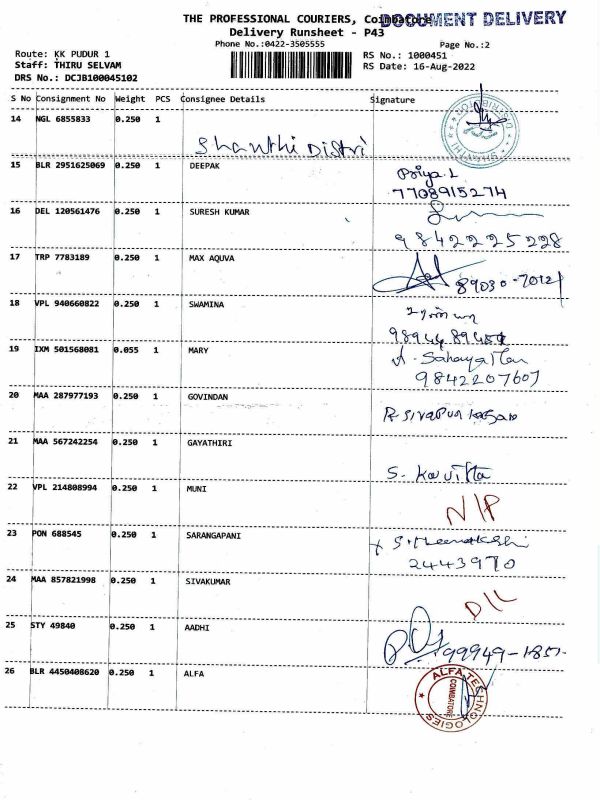 THE PROFESSIONAL COURIERS, Coimbatore
DOCUMENT DELIVERY
Delivery Runsheet - P43
Phone No.:0422-3505555
Page No.:2
Route: KK PUDUR 1
RS No.: 1000451
Staff: THIRU SELVAM
RS Date: 16-Aug-2022
DRS No.: DCJB100045102
S No Consignment No Weight PCS Consignee Details Signature
14 NGL 6855833 0.250 1
Shanthi Distri
15 BLR 2951625069 0.250 1 DEEPAK
Priya.L
7708915274
16 DEL 120561476 0.250 1 SURESH KUMAR
9842225228
17 TRP 7783189 0.250 1 MAX AQUVA
89030-70121
18 VPL 940660822 0.250 1 SWAMINA
19 IXM 501568081 0.055 1 MARY
9842207607
20 MAA 287977193 0.250 1 GOVINDAN
21 MAA 567242254 0.250 1 GAYATHIRI
S. Kavitha
22 VPL 214808994 0.250 1 MUNI
N/P
23 PON 688545 0.250 1 SARANGAPANI
2443970
24 MAA 857821998 0.250 1 SIVAKUMAR
D/L
25 STY 49840 0.250 1 AADHI
26 BLR 4450408620 0.250 1 ALFA
ALFA TECHNOLOGIES
COIMBATORE